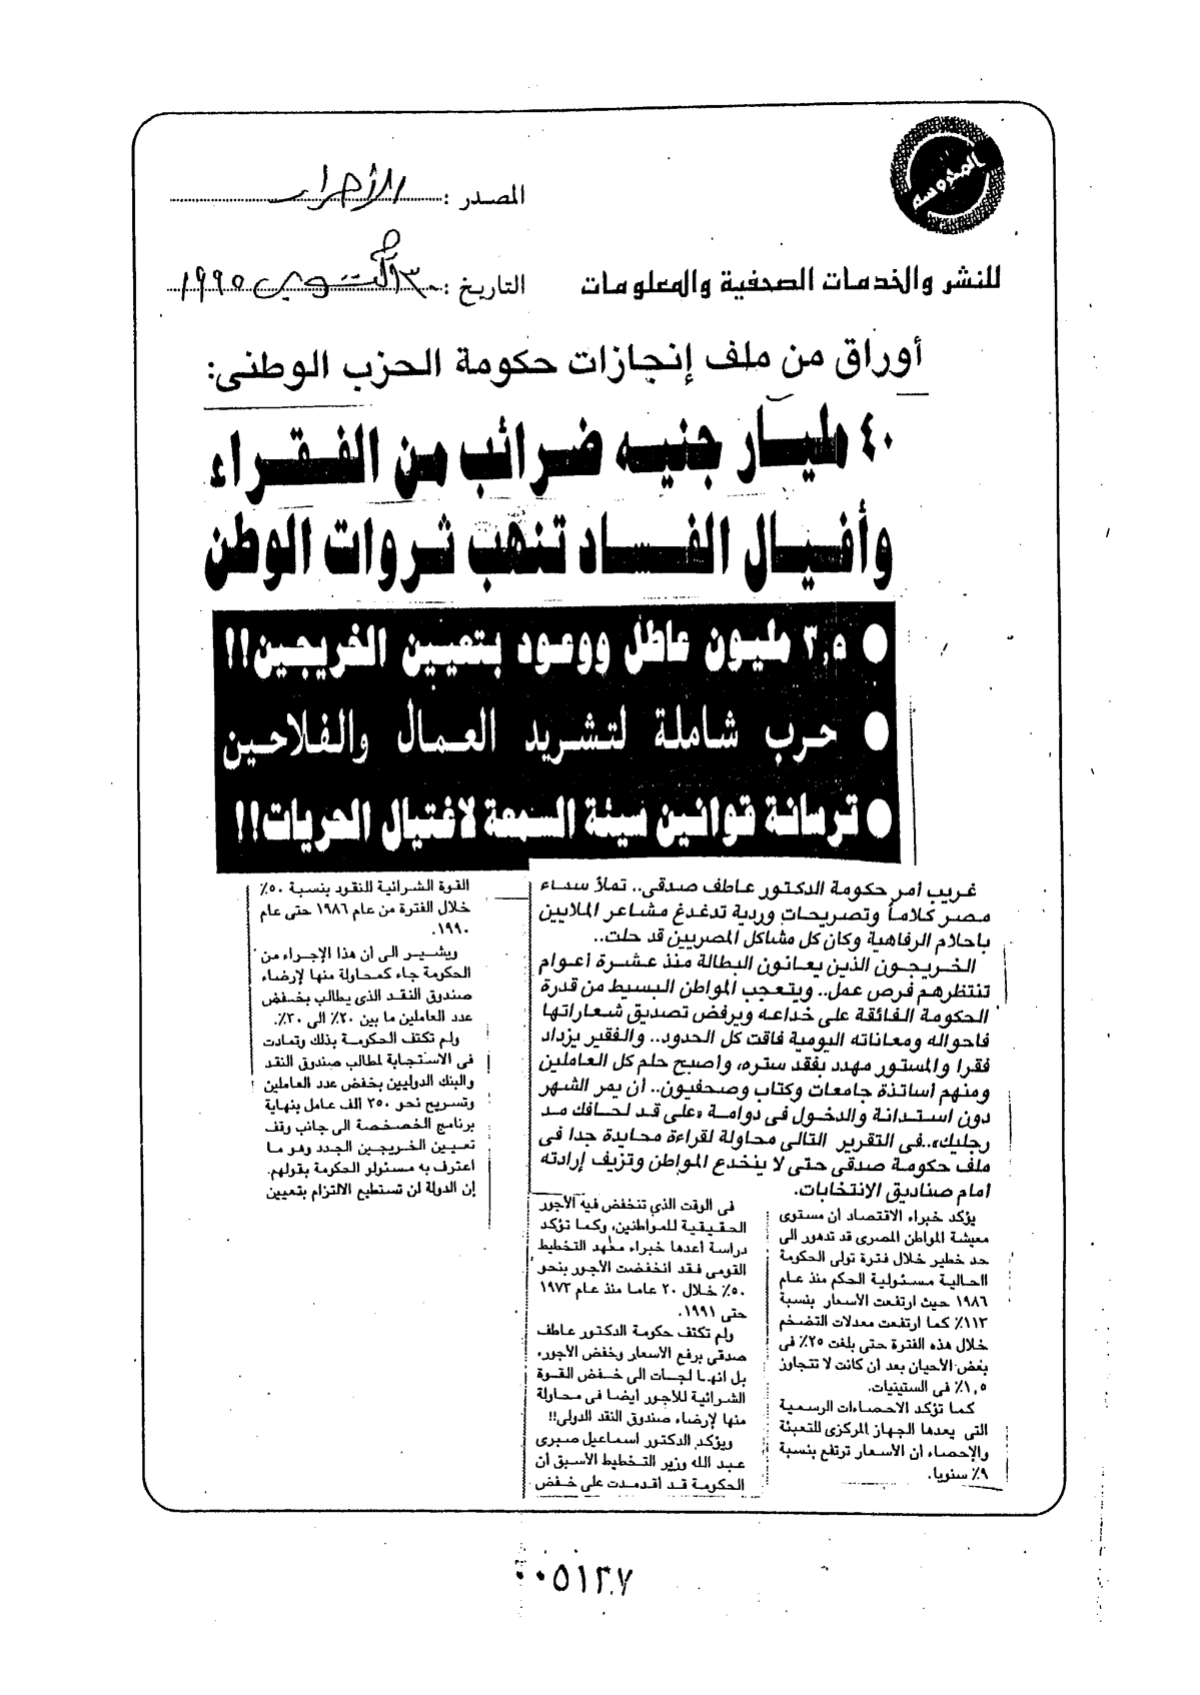 المدوسة
المصدر : الأحرار
للنشر والخدمات الصحفية والمعلومات
التاريخ : ٣٠ أكتوبر ١٩٩٥
أوراق من ملف إنجازات حكومة الحزب الوطنى:
٤٠ مليار جنيه ضرائب من الفقراء
وأفيال الفساد تنهب ثروات الوطن
● ٣,٥ مليون عاطل ووعود بتعيين الخريجين!!
● حرب شاملة لتشريد العمال والفلاحين
● ترسانة قوانين سيئة السمعة لاغتيال الحريات!!
غريب أمر حكومة الدكتور عاطف صدقى.. تملأ سماء
مصر كلاماً وتصريحات وردية تدغدغ مشاعر الملايين
باحلام الرفاهية وكان كل مشاكل المصريين قد حلت..
الخريجون الذين يعانون البطالة منذ عشرة أعوام
تنتظرهم فرص عمل.. ويتعجب المواطن البسيط من قدرة
الحكومة الفائقة على خداعه ويرفض تصديق شعاراتها
فاحواله ومعاناته اليومية فاقت كل الحدود.. والفقير يزداد
فقرا والمستور مهدد بفقد ستره، واصبح حلم كل العاملين
ومنهم أساتذة جامعات وكتاب وصحفيون.. ان يمر الشهر
دون استدانة والدخول فى دوامة «على قد لحافك مد
رجليك»..فى التقرير التالى محاولة لقراءة محايدة جدا فى
ملف حكومة صدقى حتى لا ينخدع المواطن وتزيف إرادته
امام صناديق الانتخابات.
يؤكد خبراء الاقتصاد أن مستوى
معيشة المواطن المصرى قد تدهور الى
حد خطير خلال فترة تولى الحكومة
الحالية مسئولية الحكم منذ عام
١٩٨٦ حيث ارتفعت الأسعار بنسبة
١١٣٪ كما ارتفعت معدلات التضخم
خلال هذه الفترة حتى بلغت ٢٥٪ فى
بعض الأحيان بعد أن كانت لا تتجاوز
١,٥٪ فى الستينيات.
كما تؤكد الاحصاءات الرسمية
التى يعدها الجهاز المركزى للتعبئة
والإحصاء أن الأسعار ترتفع بنسبة
٩٪ سنويا.
فى الوقت الذي تنخفض فيه الأجور
الحقيقية للمواطنين، وكما تؤكد
دراسة أعدها خبراء معهد التخطيط
القومى فقد انخفضت الأجور بنحو
٥٠٪ خلال ٢٠ عاما منذ عام ١٩٧٣
حتى ١٩٩١.
ولم تكتف حكومة الدكتور عاطف
صدقى برفع الأسعار وخفض الأجور،
بل انها لجات الى خفض القوة
الشرائية للأجور أيضا فى محاولة
منها لإرضاء صندوق النقد الدولى!!
ويؤكد الدكتور اسماعيل صبرى
عبد الله وزير التخطيط الأسبق أن
الحكومة قد أقدمت على خفض
القوة الشرائية للنقود بنسبة ٥٠٪
خلال الفترة من عام ١٩٨٦ حتى عام
١٩٩٠.
ويشير الى أن هذا الإجراء من
الحكومة جاء كمحاولة منها لإرضاء
صندوق النقد الذى يطالب بخفض
عدد العاملين ما بين ٢٠٪ الى ٣٠٪.
ولم تكتف الحكومة بذلك وتمادت
فى الاستجابة لمطالب صندوق النقد
والبنك الدوليين بخفض عدد العاملين
وتسريح نحو ٢٥٠ ألف عامل بنهاية
برنامج الخصخصة الى جانب وقف
تعيين الخريجين الجدد وهو ما
اعترف به مسئولو الحكومة بقولهم.
إن الدولة لن تستطيع الالتزام بتعيين